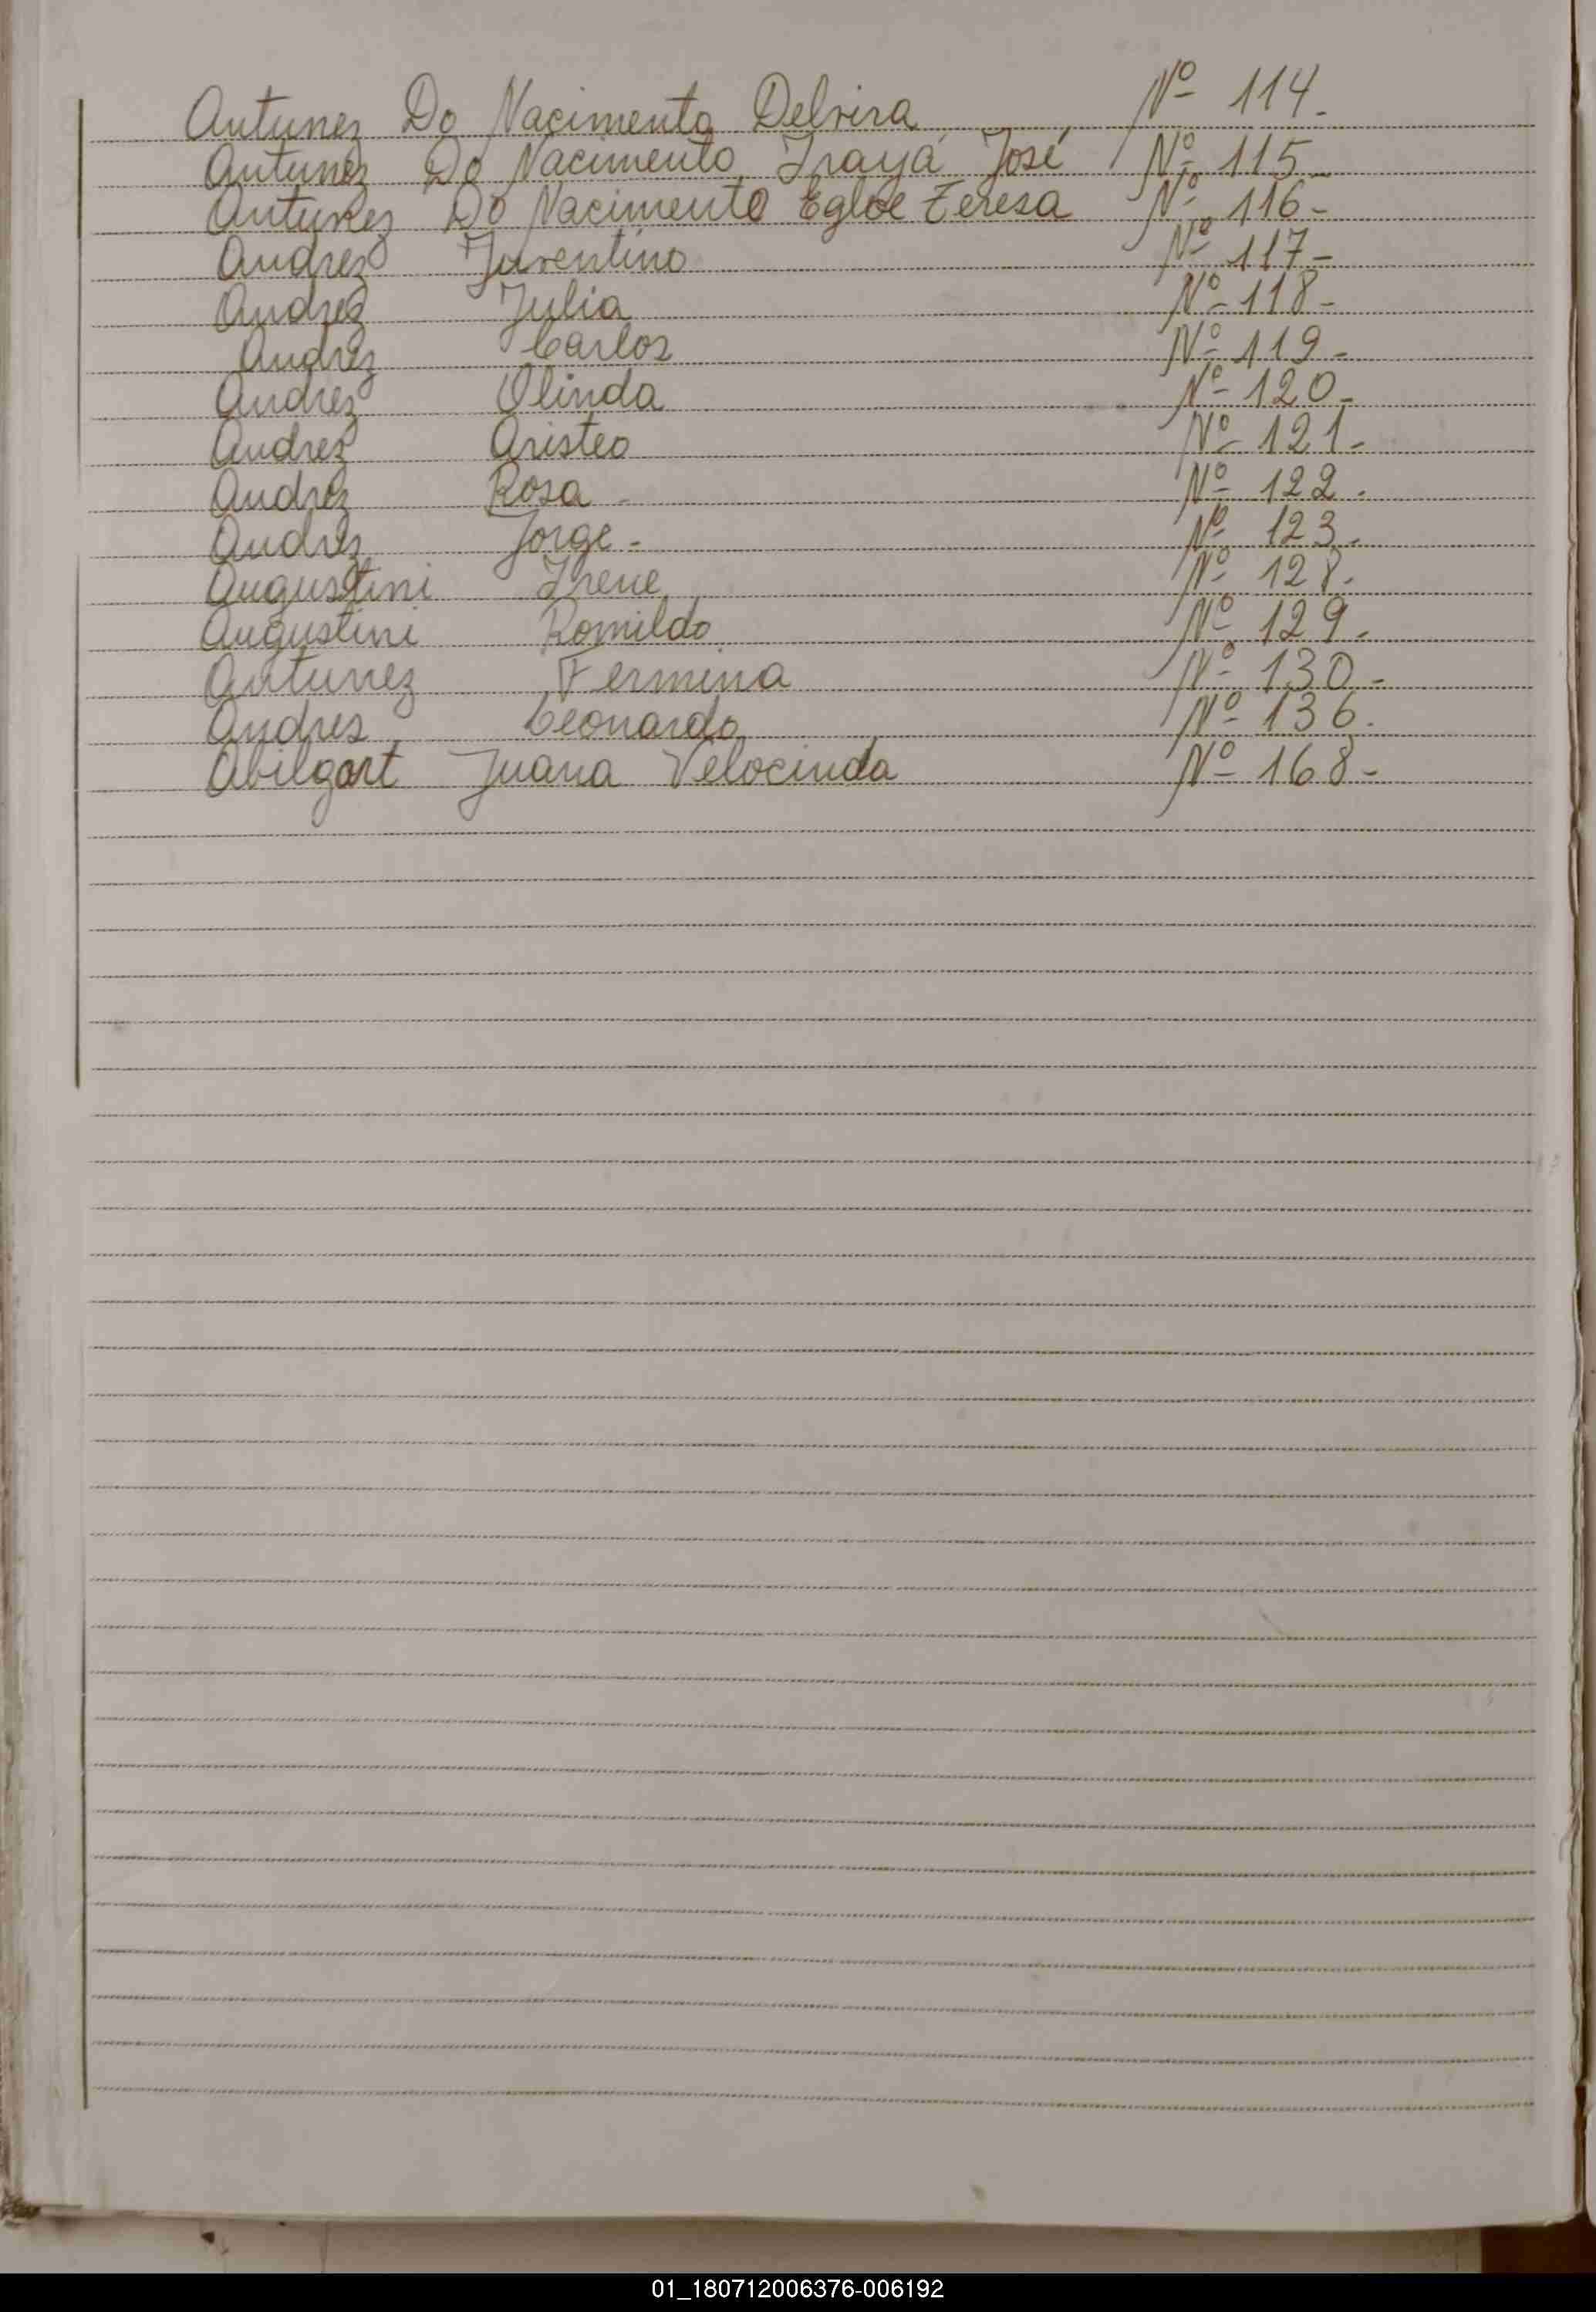 Antunez Do Nacimento Delvira Nº 114.
Antunez Do Nacimento Irayá José Nº 115-
Antunez Do Nacimento Egloe Teresa Nº 116-
Andrez Juventino Nº 117-
Andrez Julia Nº 118-
Andrez Carlos Nº 119-
Andrez Olinda Nº 120-
Andrez Aristeo Nº 121-
Andrez Rosa - Nº 122.
Andrez Jorge - Nº 123.
Augustini Irene Nº 128.
Augustini Romildo Nº 129.
Antunez Fermina Nº 130-
Andres Leonardo Nº 136.
Abilgart Juana Velocinda Nº 168-
01_180712006376-006192